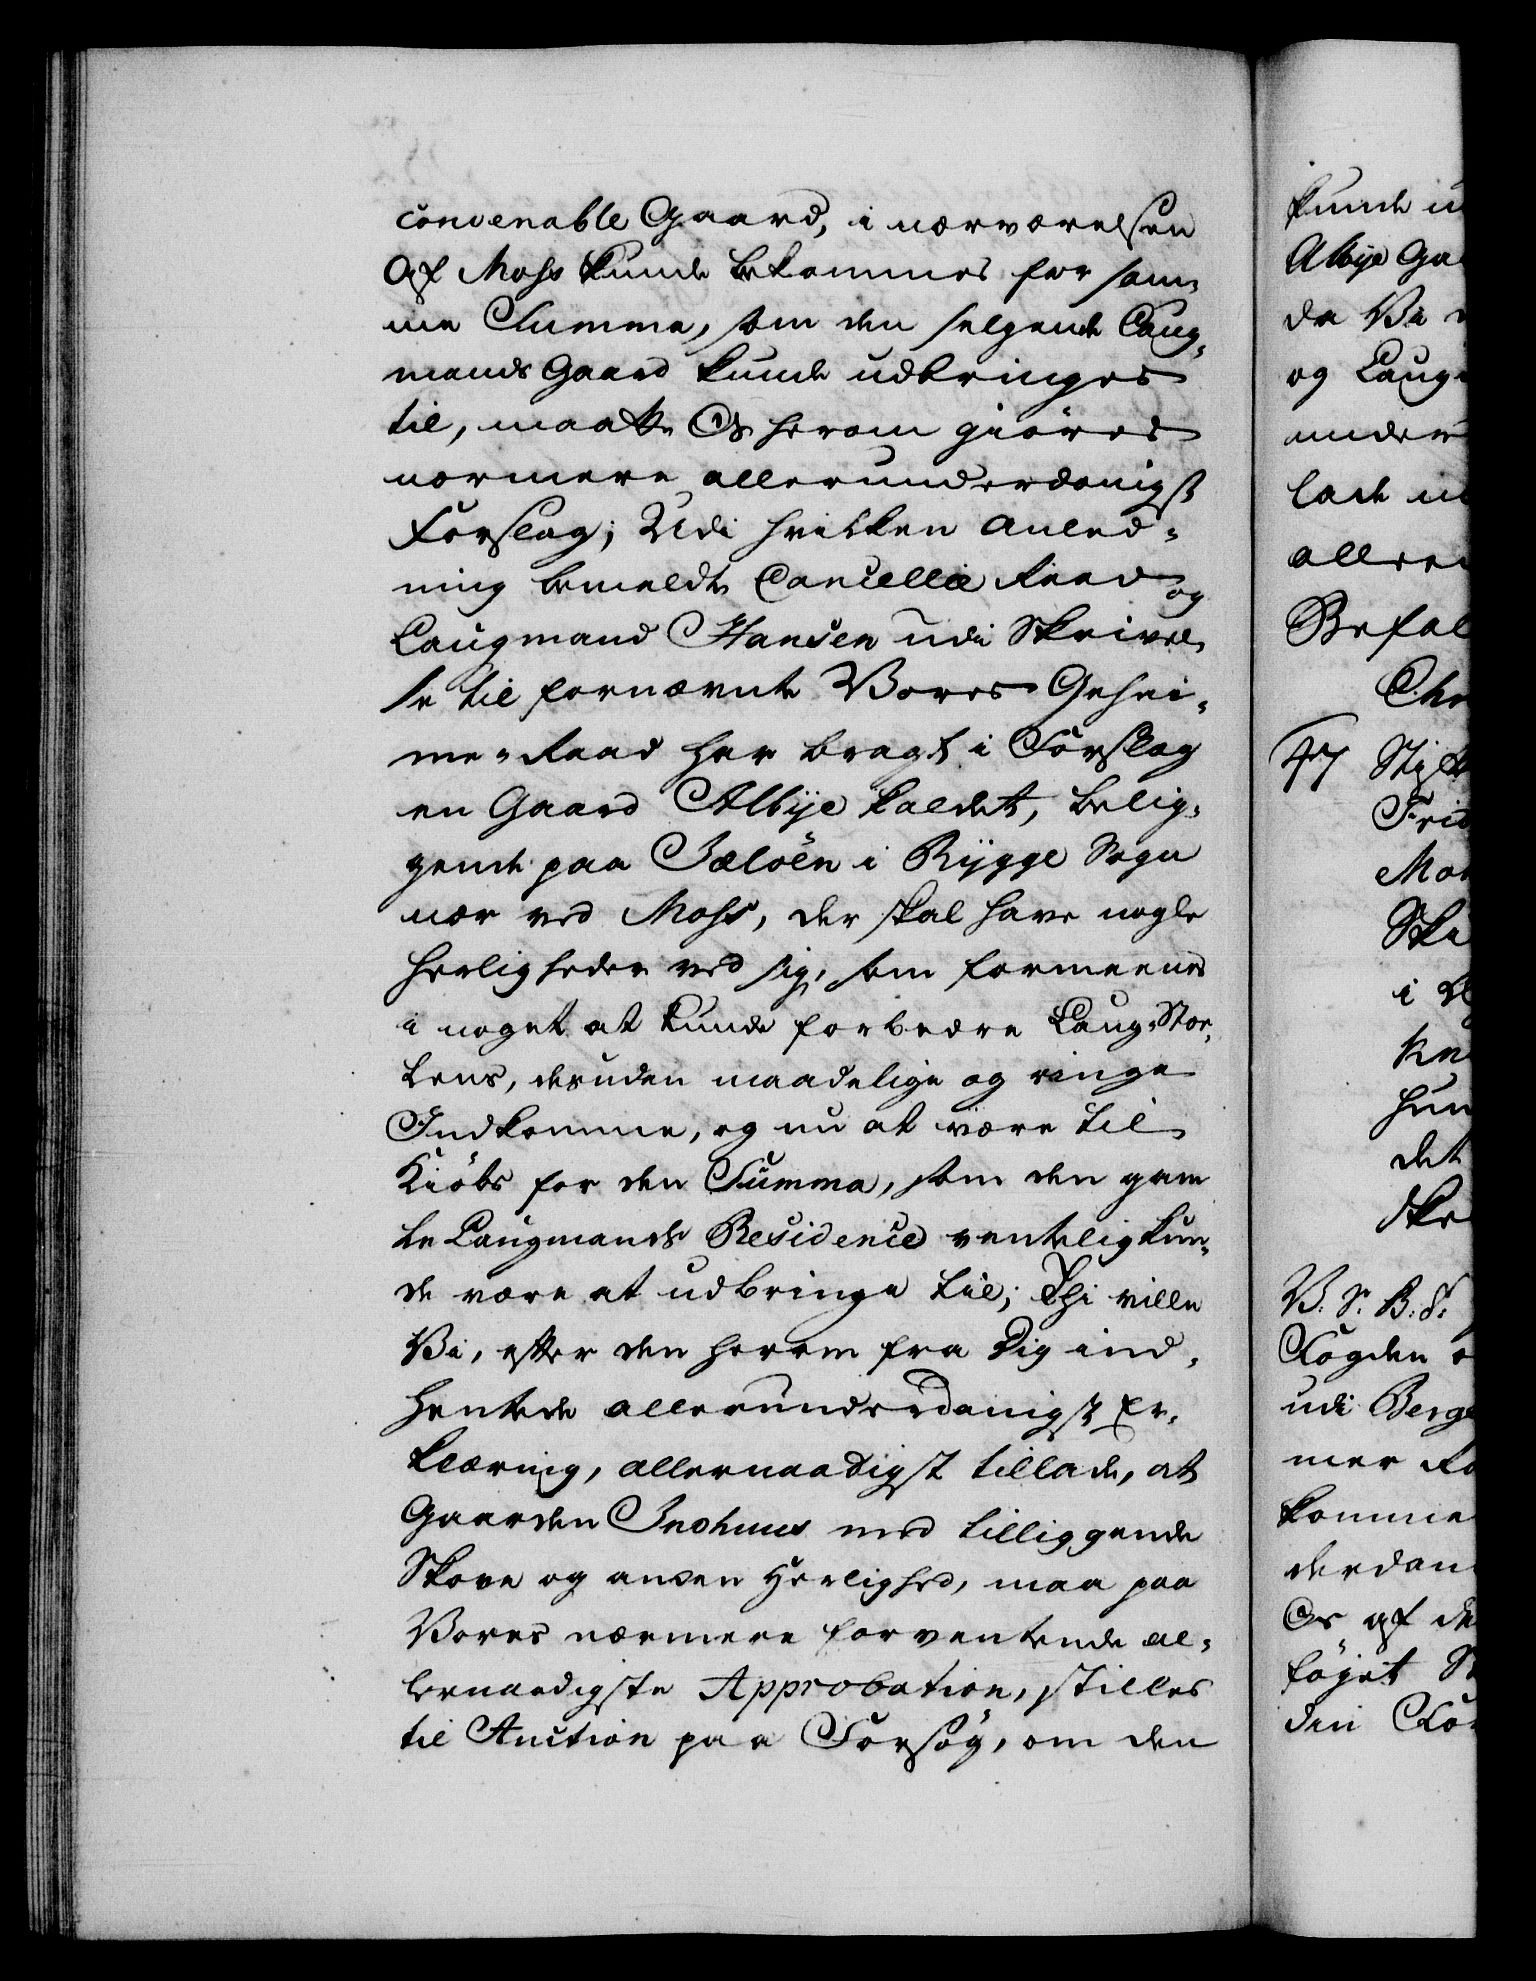 convenable Gaard, i nærværelsen
Af Mohs kunde bekommes for sam¬
me Summa, som den sælgende Laug¬
mands Gaard kunde udbringes
til, maatte Os herom giöres
nærmere allerunderdanigst
Forslag; Udi hvilken Anled¬
ning bemeldte Cancellie Raad og
Laugmand Hansen udi Skrivel¬
se til fornævnte Vores Gehei¬
me-Raad har bragt i Forslag
en Gaard Albÿe kaldet, belig¬
gende paa Jælöen i Rÿgge Sogn
nær ved Mohs, der skal have nogle
Herligheder ved sig, som formeenes
i noget at kunde forbedre Laug-Stoe¬
lens, desuden maadelige og ringe
Indkomme, og nu at være til
Kiöbs for den Summa, som den gam
le Laugmands Residence ventelig kun¬
de være at udbringe til; Thi ville
Vi, efter den herom fra Dig ind¬
hentede allerunderdanigst Er¬
klæring, allernaadigst tillade, at
Gaarden med tilliggende
Skove og anden Herlighed, maa paa
Vores nærmere forventende al¬
lernaadigste Approbation, stilles
til Auction paa Forsög, om den
kunde u
Albÿe Ga
da Vi
og Laug
under
lade u
aller
Befal
Chr
47 Stift
Frid
Mo
Ska
i
kn
hun
det
ske
V. S. B. F.
Fogden
udi Berg
mer Ra
komme
derdan
Os af de
föÿet
din For